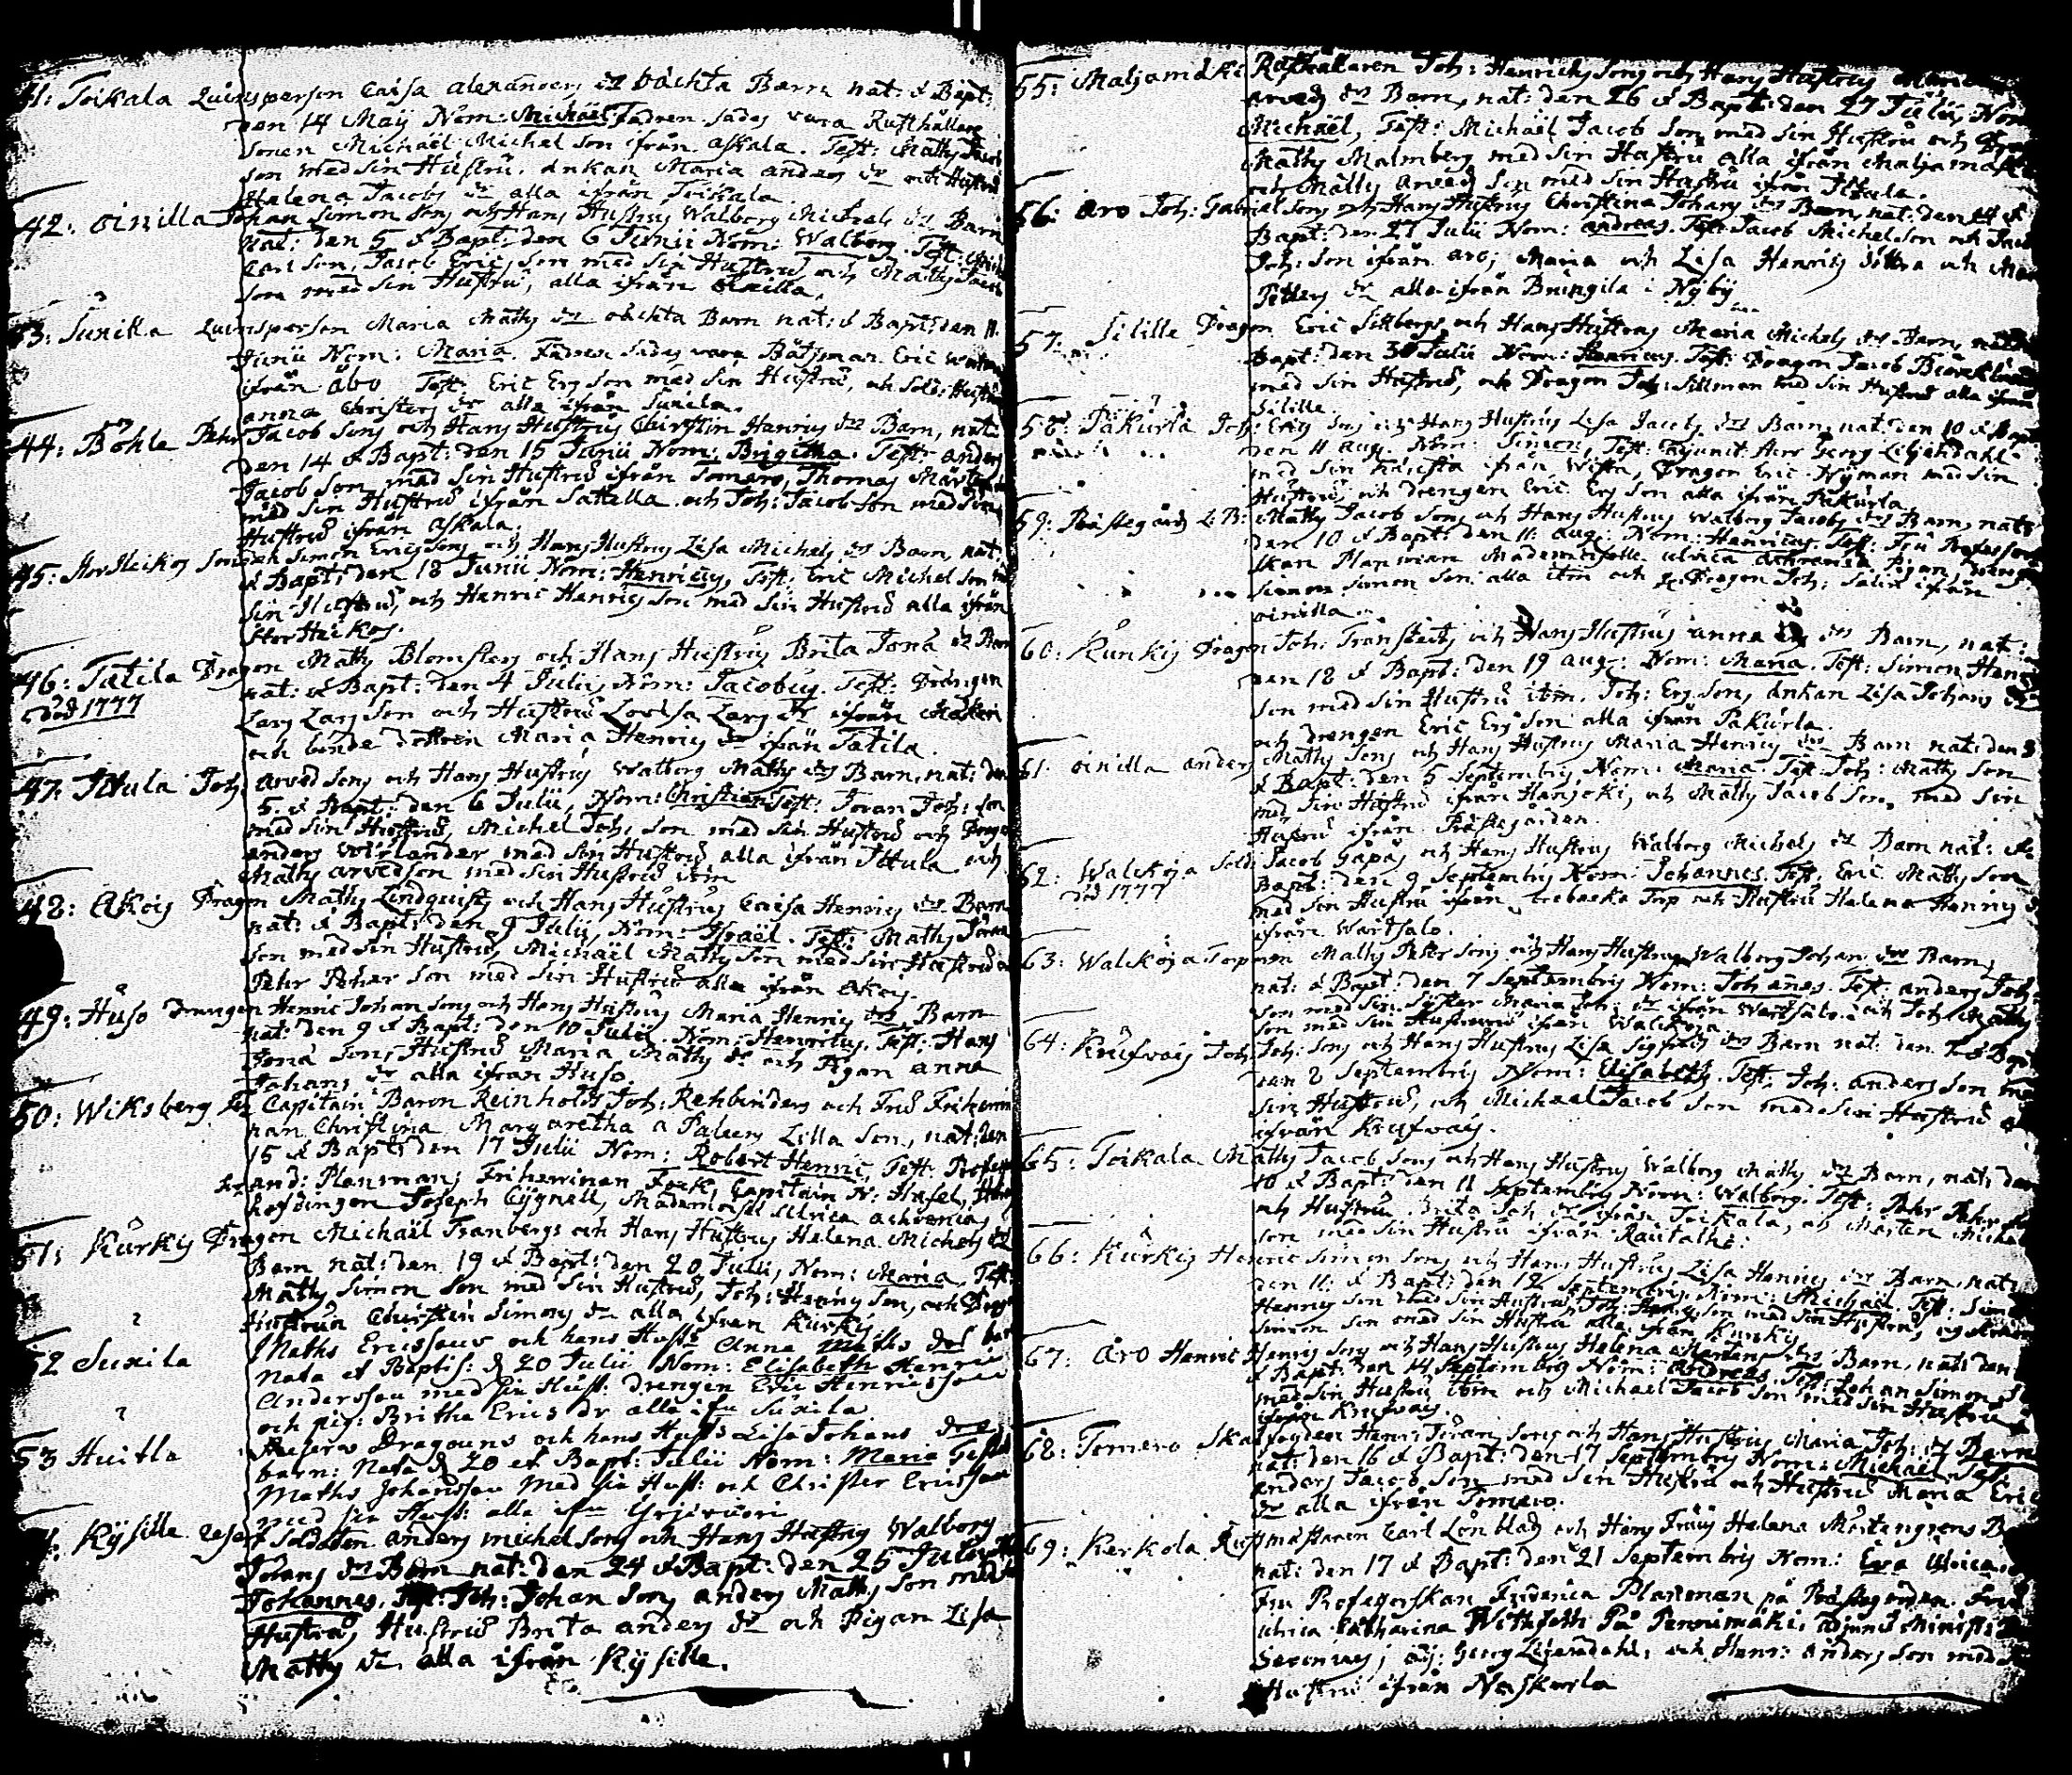 41: Toikala Quinsperson Caisa Alexanders dr oächta Barn nat: & Bapt:
den 14 Maij Nom: Michaël Fadren sades vara Rusthållare
Sonen Michaël Michel Son ifrån Askala. Test: Matths Jacob
Son med Sin Hustru, Ankan Maria Anders dr och Hustru
Helena Jacobs dr alla ifrån Toikala.
42: Oinilla Johan Simon Sons och Hans Hustrus Walborg Michels drs Barn
Nat: den 5 & Bapt: den 6 Junii Nom: Walborg. Test:
Carl Son, Jacob Eric Son med Sin Hustru och Matths Jacob
Son med Sin Hustru, alla ifrån Oinilla.
43: Sunilla Quinsperson Maria Matths dr oächta Barn nat: & Bapt: den 11.
Junii Nom: Maria. Fadren Sades vara Båtsman Eric
ifrån Åbo Test: Eric Ers Son med Sin Hustru, och Sold: Hustru
Anna Christers dr alla ifrån Sunila.
44: Böhle Pehr Jacob Sons och Hans Hustrus Chirstin Henrics drs Barn, nat:
den 14 & Bapt: den 15 Junii Nom: Brigitha. Test: Anders
Jacob Son med Sin Hustru ifrån Somero, Thomas Mårten
med Sin Hustru ifrån Sattilla och Joh: Jacob Son med Sin
Hustru ifrån Askala.
45: Stor Heikos Simon Erics Sons och Hans Hustrus Lisa Michels drs Barn, nat:
& Bapt: den 18 Junii Nom: Henricus, Test: Eric Michel Son med
Sin Hustru, och Henric Henrics Son med Sin Hustru alla ifrån
Stor Heikos.
46: Tatila Dragon Matths Blomsters och Hans Hustrus Brita Jona dr Barn
död 1777 nat: & Bapt: den 4 Julii, Nom: Jacobus. Test: Drängen
Lars Lars Son och Hustru Lovisa Lars dr ifrån
och bonde dottren Maria Henrics dr ifrån Tatila.
47: Ittula Joh: Arved Sons och Hans Hustrus Walborg Matths drs Barn, nat: den
5. & Bapt: den 6 Julii, Nom: Christian Test: Joran Joh: Son
med Sin Hustru, Michel Joh: Son med Sin Hustru och Dragon
Anders med Sin Hustru alla ifrån Ittula och
Matths Arvedson med Sin Hustru ibm
48: Akois Dragon Matths Lindquists och Hans Hustrus Caisa Henrics drs Barn
nat: & Bapt: den 9 Julii, Nom: Israël. Test: Matths Jöran
Son med Sin Hustru, Michaël Matths Son med Sin Hustru och
Pehr Pehar Son med Sin Hustru alla ifrån Akois.
49: Huso Drängen Henric Johan Sons och Hans Hustrus Maria Henrics drs Barn
nat: den 9 & Bapt: den 10 Julii. Nom: Henricus. Test: Hans
Jona Son, Hustru Maria Matths dr och Pigan Anna
Johans dr alla ifrån Huso.
50: Wiksberg Hr Capitain Baron Reinholds Joh: Rehbinders och Fru Friherrin
nan Christina Margaretha a Palens Lilla Son, nat: den
15 & Bapt: den 17 Julii Nom: Robert Henric, Test: Profess:
Hr And: Planmans, Friherrinan Fock, Capitain N: Hasel, Härads
höfdingen Joseph Cygnell, Mademoisel Ulrica Achrenia,
51: Kurkis Dragon Michaël Tranbergs och Hans Hustrus Helena Michels drs
Barn nat: den 19 & Bapt: den 20 Julii, Nom: Maria, Test:
Matths Simon Son med Sin Hustru, Joh: Henrics Son, och Drag:
Hustrun Chirstin Simons dr alla ifrån Kurkis
52 Sunila Maths Ericssons och hans Hust: Anna Maths drs barn
Nata et Baptis: d 20 Julii Nom: Elisabeth Henric
Andersson med sin Hust: drengen Eric Henricsson
och pig: Britha Erics dr alla ifrn Sunila
53 Huitla Dragouns och hans Hust: Lisa Johans drs
barn: Nata d 20 et Bapt: Julii Nom: Maria Testes
Maths Johansson med sin Hust: och Christer Ericsson
med sin Hust: alla ifrn
Rijsille Reserf Soldaten Anders Michel Sons och Hans Hustrus Walborg
Johans drs Barn nat: den 24 & Bapt: den 25 Julii
Johannes, Test: Joh: Johan Son, Anders Matths Son med
Hustru Brita Anders dr och Pigan Lisa
Matths dr alla ifrån Rijsille.
55: Maljamäki Rusthållaren Joh: Henrichs Sons och Hans Hustrus
Arveds drs Barn, nat: den 26 & Bapt: den 27 Julii, Nom
Michaël, Test: Michaël Jacob Son med Sin Hustru och Drag
Matths Malmberg med Sin Hustru alla ifrån Maljamäki
och Matths Arveds Son med Sin Hustru ifrån Ittala.
56: Aro Joh: Gabriel Sons och Hans Hustrus Christina Johans drs Barn, nat: den 24 &
Bapt: den 27 Julii Nom: Andreas. Test: Jacob Michel Son och Jacob
Joh: Son ifrån Aro, Maria och Lisa Henrics döttra och
dr alla ifrån Bningila i Nÿbÿ
57: Sillile Dragon Eric Sillbergs och Hans Hustrus Maria Michels drs Barn,
Bapt: den 30 Julii Nom: Henricus. Test: Dragon Jacob
med Sin Hustru, och Dragon Joh: Sillman med Sin Hustru alla ifrån
Silille.
58: Pakurla Joh: Erics Sons och Hans Hustrus Lisa Jacobs drs Barn, nat: den 10 & Bapt:
den 11 Aug. Nom: Simon, Test: Adjunct Herr Georg Liljendahl
med Sin ifrån Wista, Dragon Eric Nÿman med Sin
Hustru, och drengen Eric Ers Son alla ifrån Pakurla
59: Prästegårds L: B: Matths Jacob Sons och Hans Hustrus Walborg Jacobs drs Barn, nat:
den 10 & Bapt: den 11: Aug. Nom: Henricus. Test: Fru Professor
Skan Planman Mademoiselle Ulrica Achrenia Pigan,
Simon Simon Son alla ibm och Dragon Joh: Salin ifrån
Oinilla.
60: Kunkis Dragon Joh: Transtedts och Hans Hustrus Anna drs Barn, nat:
den 18 & Bapt: den 19 Aug: Nom: Maria. Test: Simon Henric
Son med Sin Hustru ibm. Joh: Ers Son, Ankan Lisa Johans dr
och drengen Eric Ers Son alla ifrån Pakurla
61: Oinilla Anders Matths Sons och Hans Hustrus Maria Henrics drs Barn nat: den 3
& Bapt: den 5 Septembris, Nom: Maria. Test: Joh: Matths Son
med Sin Hustru ifrån Hanjoki, och Matths Jacob Son med Sin
Hustru ifrån Prästegården.
62: Walkoja Sold: Jacob Gåpås och Hans Hustrus Walborg Michels dr Barn nat: &
död 1777 Bapt: den 9 Septembris Nom: Johannes. Test: Eric Matths Son
med Sin Hustru ifrån Torp och Hustru Helena Henrics
ifrån Wartsalo.
63: Walkoja Torparen Matths Peter Sons och Hans Hustrus Walborg Johan drs Barn,
nat: & Bapt: den 7 Septembris Nom: Johanes. Test: Anders Joh:
Son med Sin Syster Maria Joh: dr ifrån Wartsalo och Joh: Matths
Son med Sin Hustru ifrån Walkoja.
64: Knufvais Joh: Joh: Sons och Hans Hustrus Lisa Sigfreds drs Barn nat: den 7 & Bapt
den 8 Septembris Nom: Elisabeth. Test: Joh: Anders Son med
Sin Hustru, och Michael Jacob Son med Sin Hustru
ifrån Knufvais.
65: Toikala Matths Jacob Sons och Hans Hustrus Walborg Matths drs Barn, nat: den
10 & Bapt: den 11 Septembris Nom: Walborg. Test: Pehr Pehr Son
och Hustru Brita Joh: dr ifrån Toikala, och Mårten Michel
Son med Sin Hustru ifrån Rautalhi.
66: Kurkis Henric Simon Sons och Hans Hustrus Lisa Henrics drs Barn, nat:
den 11: & Bapt: den 12 Septembris, Nom: Michaël. Test: Simon
Henrics Son med Sin Hustru, Joh: Henrics Son med Sin Hustru,
Simon Son med Sin Hustru alla ifrån Kurkis
67: Aro Henric Henrics Sons och Hans Hustrus Helena Mårtens drs Barn, nat: den
& Bapt: den 14 Septembris Nom: Andreas. Test: Johan Simon
med Sin Hustru ibm och Michael Jacob Son med Sin Hustru
ifrån Knufvais.
68: Tomero Skalfogden Henr: Jöran Sons och Hans Hustrus Maria Joh: dr Barn
nat: den 16 & Bapt: den 17 Septembris Nom: Michaël. Test:
Anders Jacob Son med Sin Hustru och Hustru Maria Eric
dr alla ifrån Tomero.
69: Kerkola Rustmästaren Carl Lönblads och Hans Frus Helena Mårtengrens
nat: den 17 & Bapt: den 21 Septembris Nom: Eva Ulrica.
Fru Professorskan Fridrica Planman på Prästegården. Fru
Ulrica Catharina Withfoth På Peronimäki, Adjunct Minist:
Georg Liljendahl, och Henr: Anders Son med
Hustru ifrån Naskarla